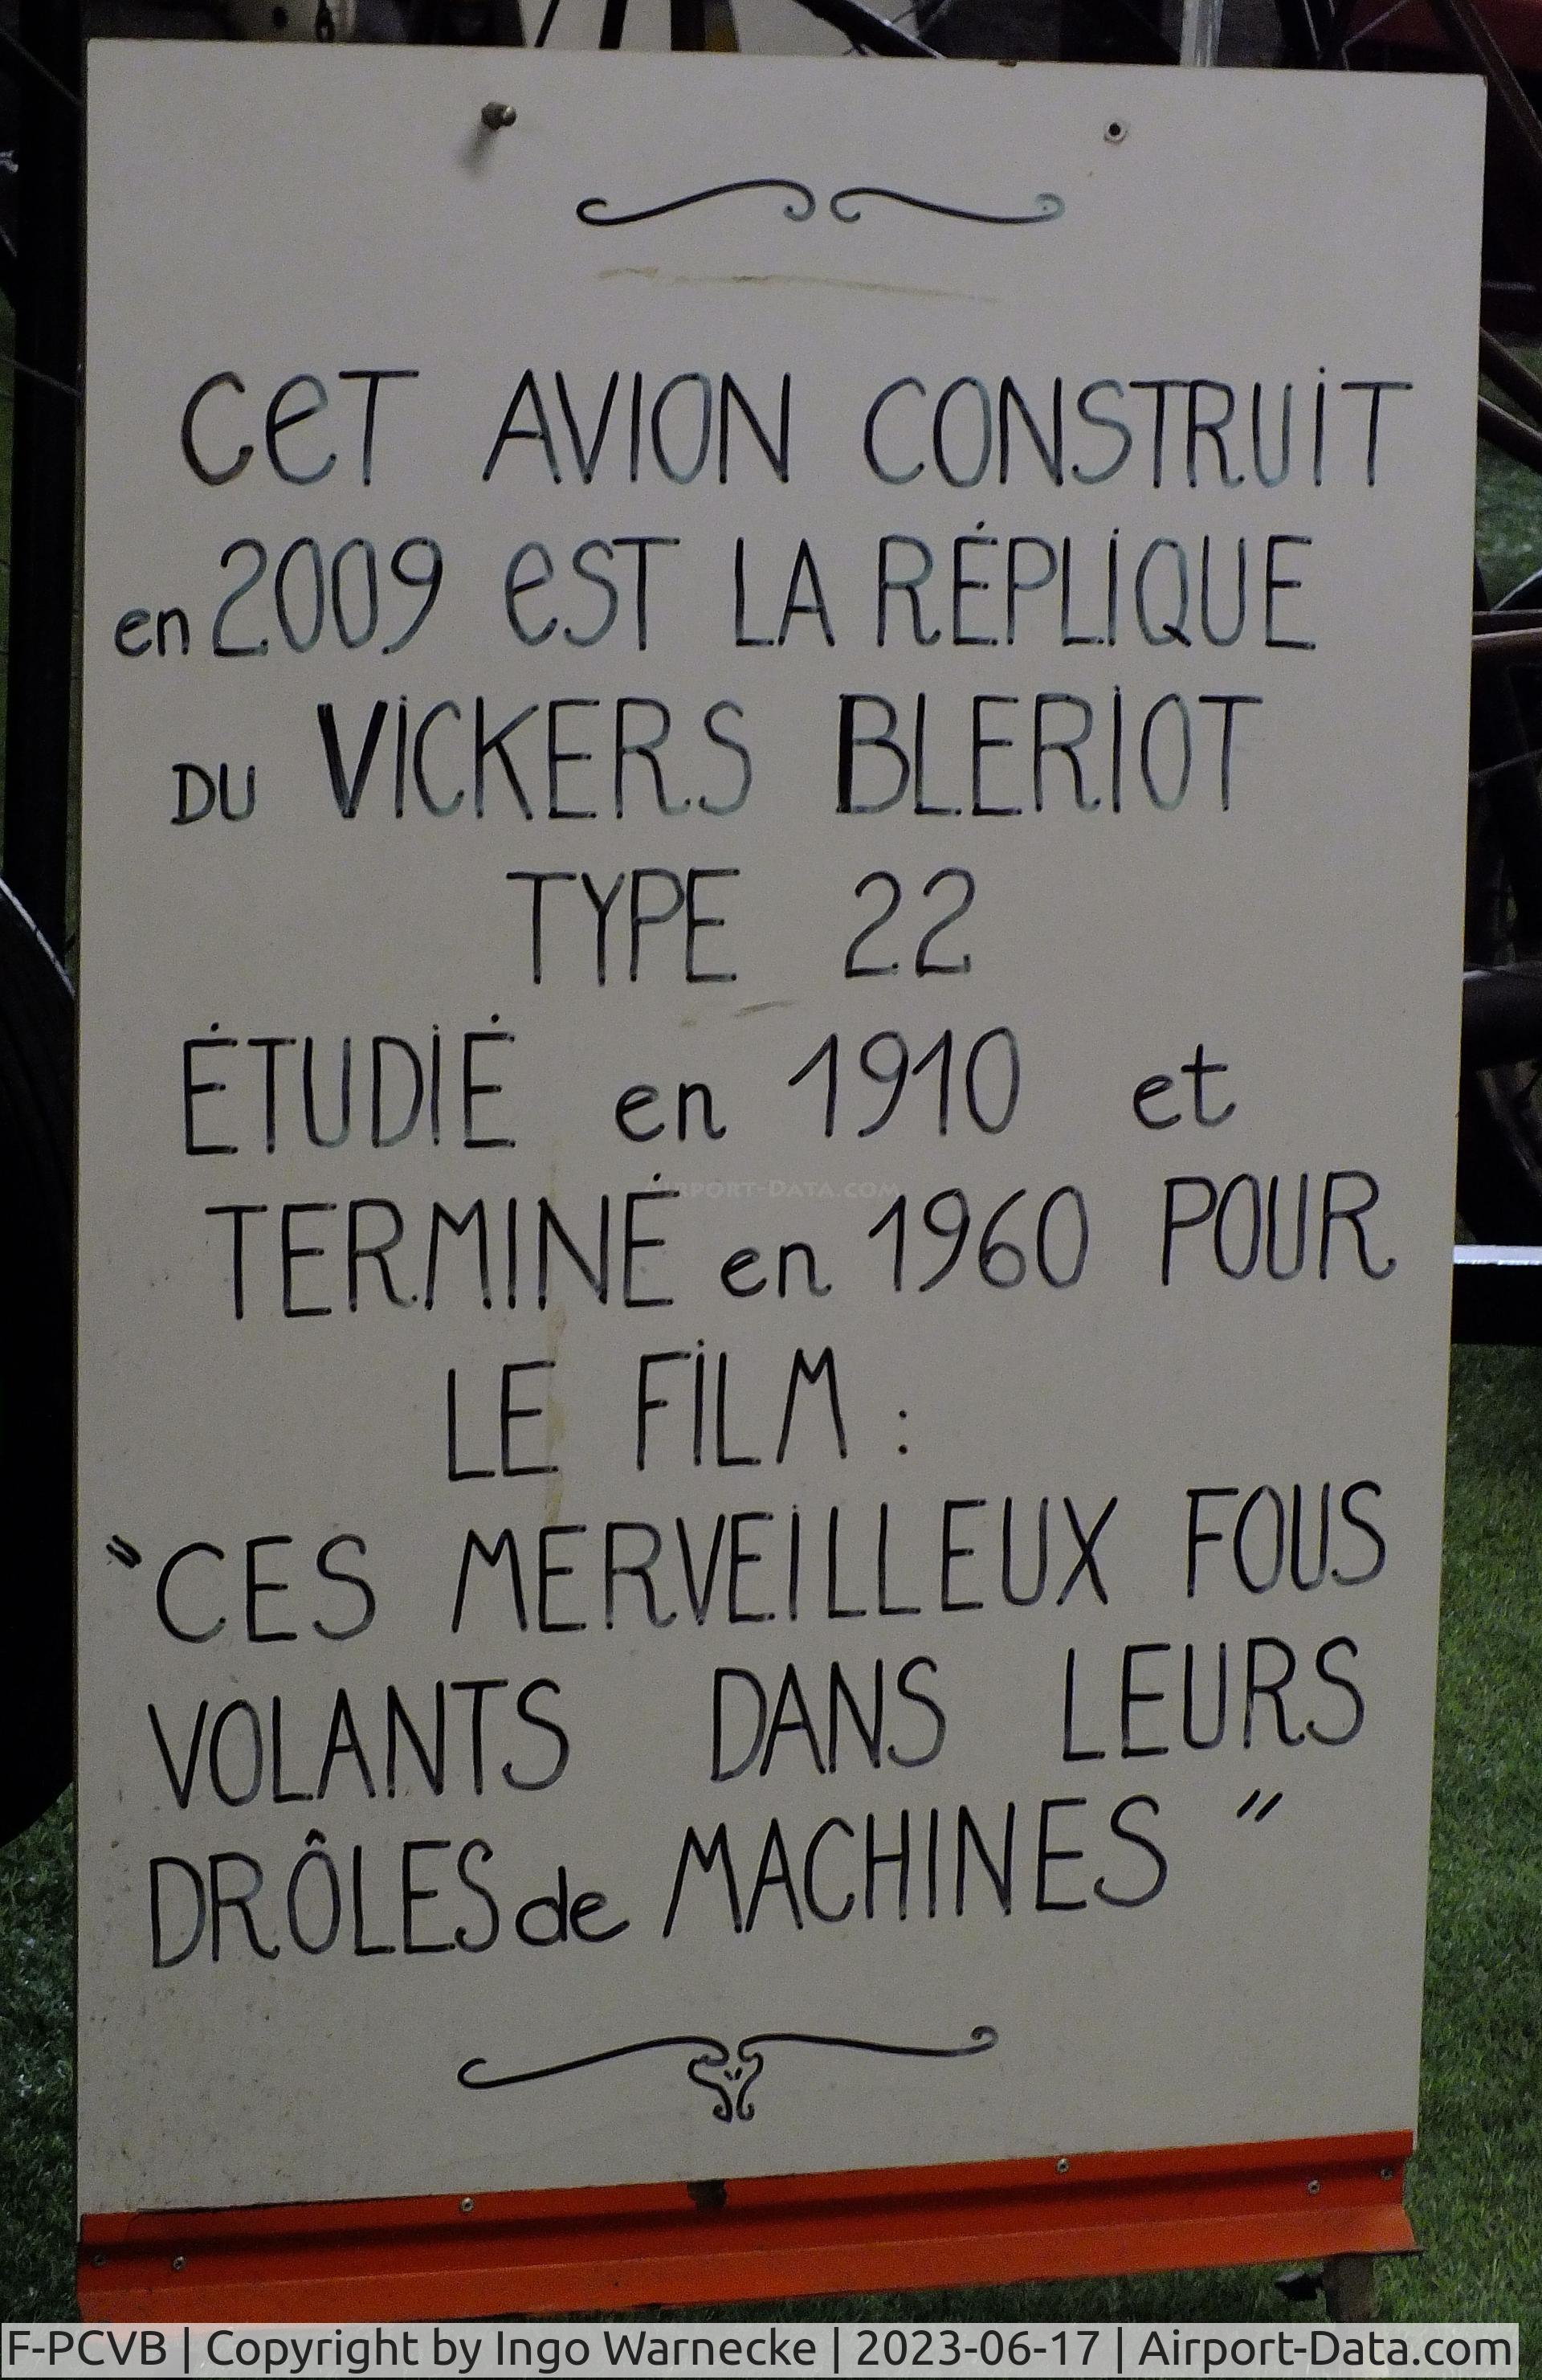 CeT AVION CONSTRUiT
en 2009 eST LA RÉPLiQUE
DU ViCKERS BLERIOT
TYPE 22
ÉTUDIÉ en 1910 et
TERMINÉ en 1960 POUR
LE FiLM :
"CES MERVEILLEUX FOUS
VOLANTS DANS LEURS
DRÔLES de MACHINES"
AIRPORT-DATA.COM
F-PCVB | Copyright by Ingo Warnecke | 2023-06-17 | Airport-Data.com